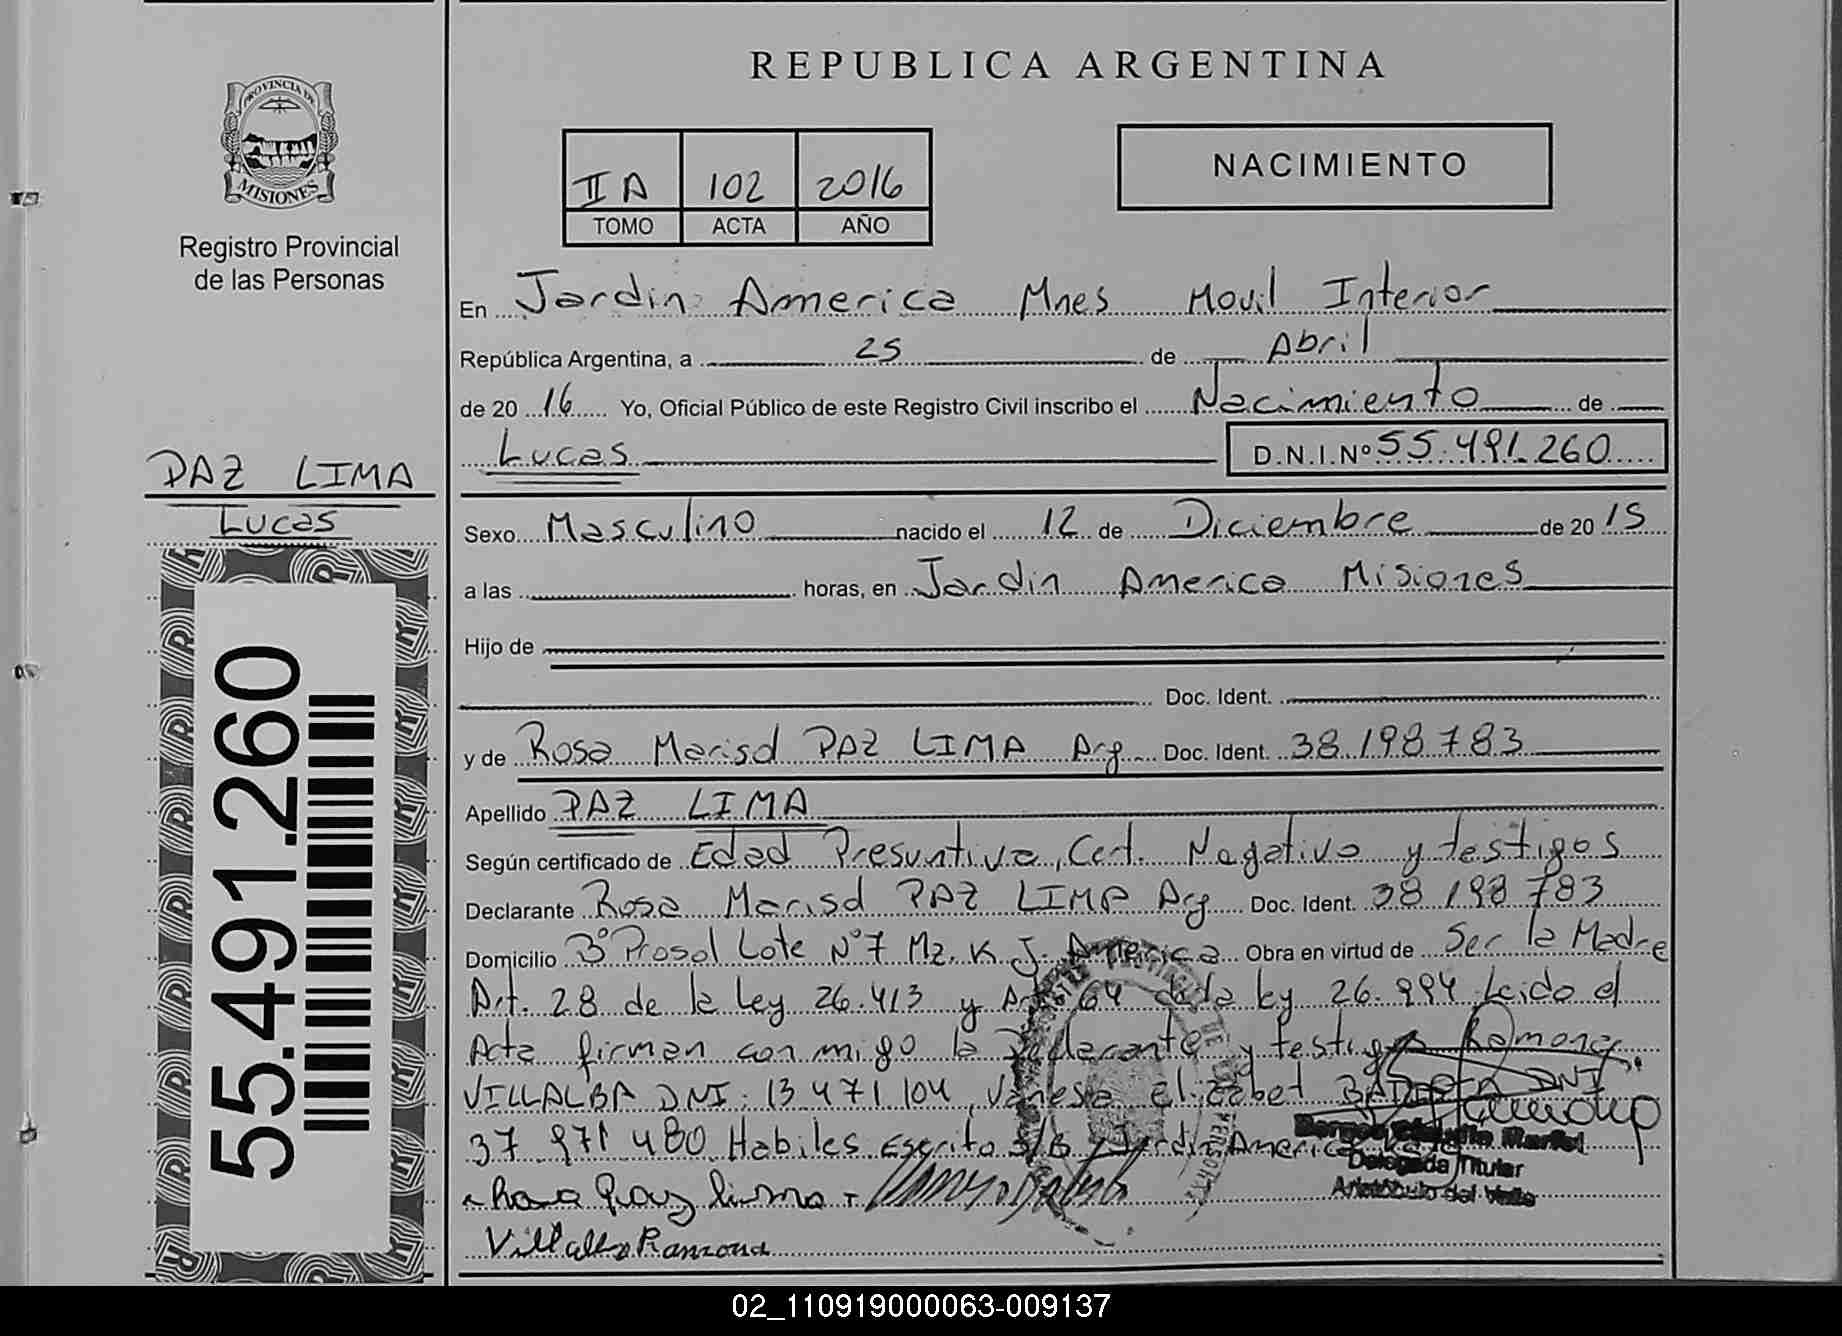 REPUBLICA ARGENTINA
PROVINCIA DE
MISIONES
Registro Provincial
de las Personas
II A 102 2016
TOMO ACTA AÑO
NACIMIENTO
En Jardin America Mnes Movil Interior
República Argentina, a 25 de Abril
de 20 16 Yo, Oficial Público de este Registro Civil inscribo el Nacimiento de
Lucas D.N.I.Nº 55.491.260
PAZ LIMA
Lucas
55.491.260
Sexo Masculino nacido el 12 de Diciembre de 20 15
a las horas, en Jardin America Misiones
Hijo de
Doc. Ident.
y de Rosa Marisol PAZ LIMA Arg Doc. Ident. 38.198.783
Apellido PAZ LIMA
Según certificado de Edad Presuntiva, Cert. Negativo y testigos
Declarante Rosa Marisol PAZ LIMA Arg Doc. Ident. 38 198 783
Domicilio 3º Prosol Lote Nº 7 Mz. K J. America Obra en virtud de Ser la Madre
Art. 28 de la Ley 26.413 y Art 64 de la Ley 26.994 Leido el
Acta firman conmigo la Declarante y testigos Ramona
VILLALBA DNI: 13 471 104, Vanesa elizabet DNI
37 971 480 Habiles Escrito S/B Jardin America
Delegada Titular
Aristóbulo del Valle
Villalba Ramona
02_110919000063-009137